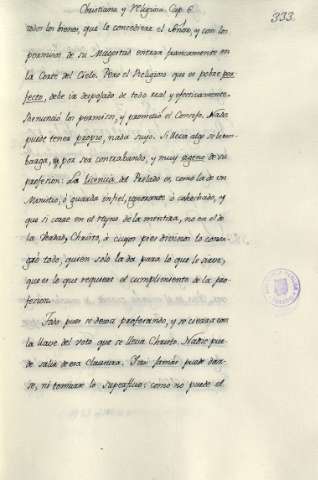 Christiana y Religiosa. Cap. 6.
333.
todos los bienes, que le concediere el Señor, y con los
permisos de su Magestad entrar francamente en
la Corte del Cielo. Pero el Religioso que es pobre per-
fecto, debe ir despojado de todo real y efectivamente.
Renunció los permisos, y prometió el Consejo. Nada
puede tener propio, nada suyo. Si lleva algo se le em-
barga, por ser contrabando, y muy ageno de su
profesion. La Licencia del Prelado es, como la de un
Ministro, ó guarda infiel, ignorante, ó cohechado, y
que si corre en el Reyno de la mentira, no en el de
la Verdad, Christo, á cuyos pies divinos lo consa-
gró todo, quien solo la da para lo que le sirve,
que es lo que requiere el cumplimiento de la pro-
fesion.
Todo pues se desea profesando, y se cierra con
la llave del voto que se lleva Christo. Nadie pue-
de salir de esa Clausura. Ni jamás puede dar-
se, ni tomarse lo superfluo: como no puede el